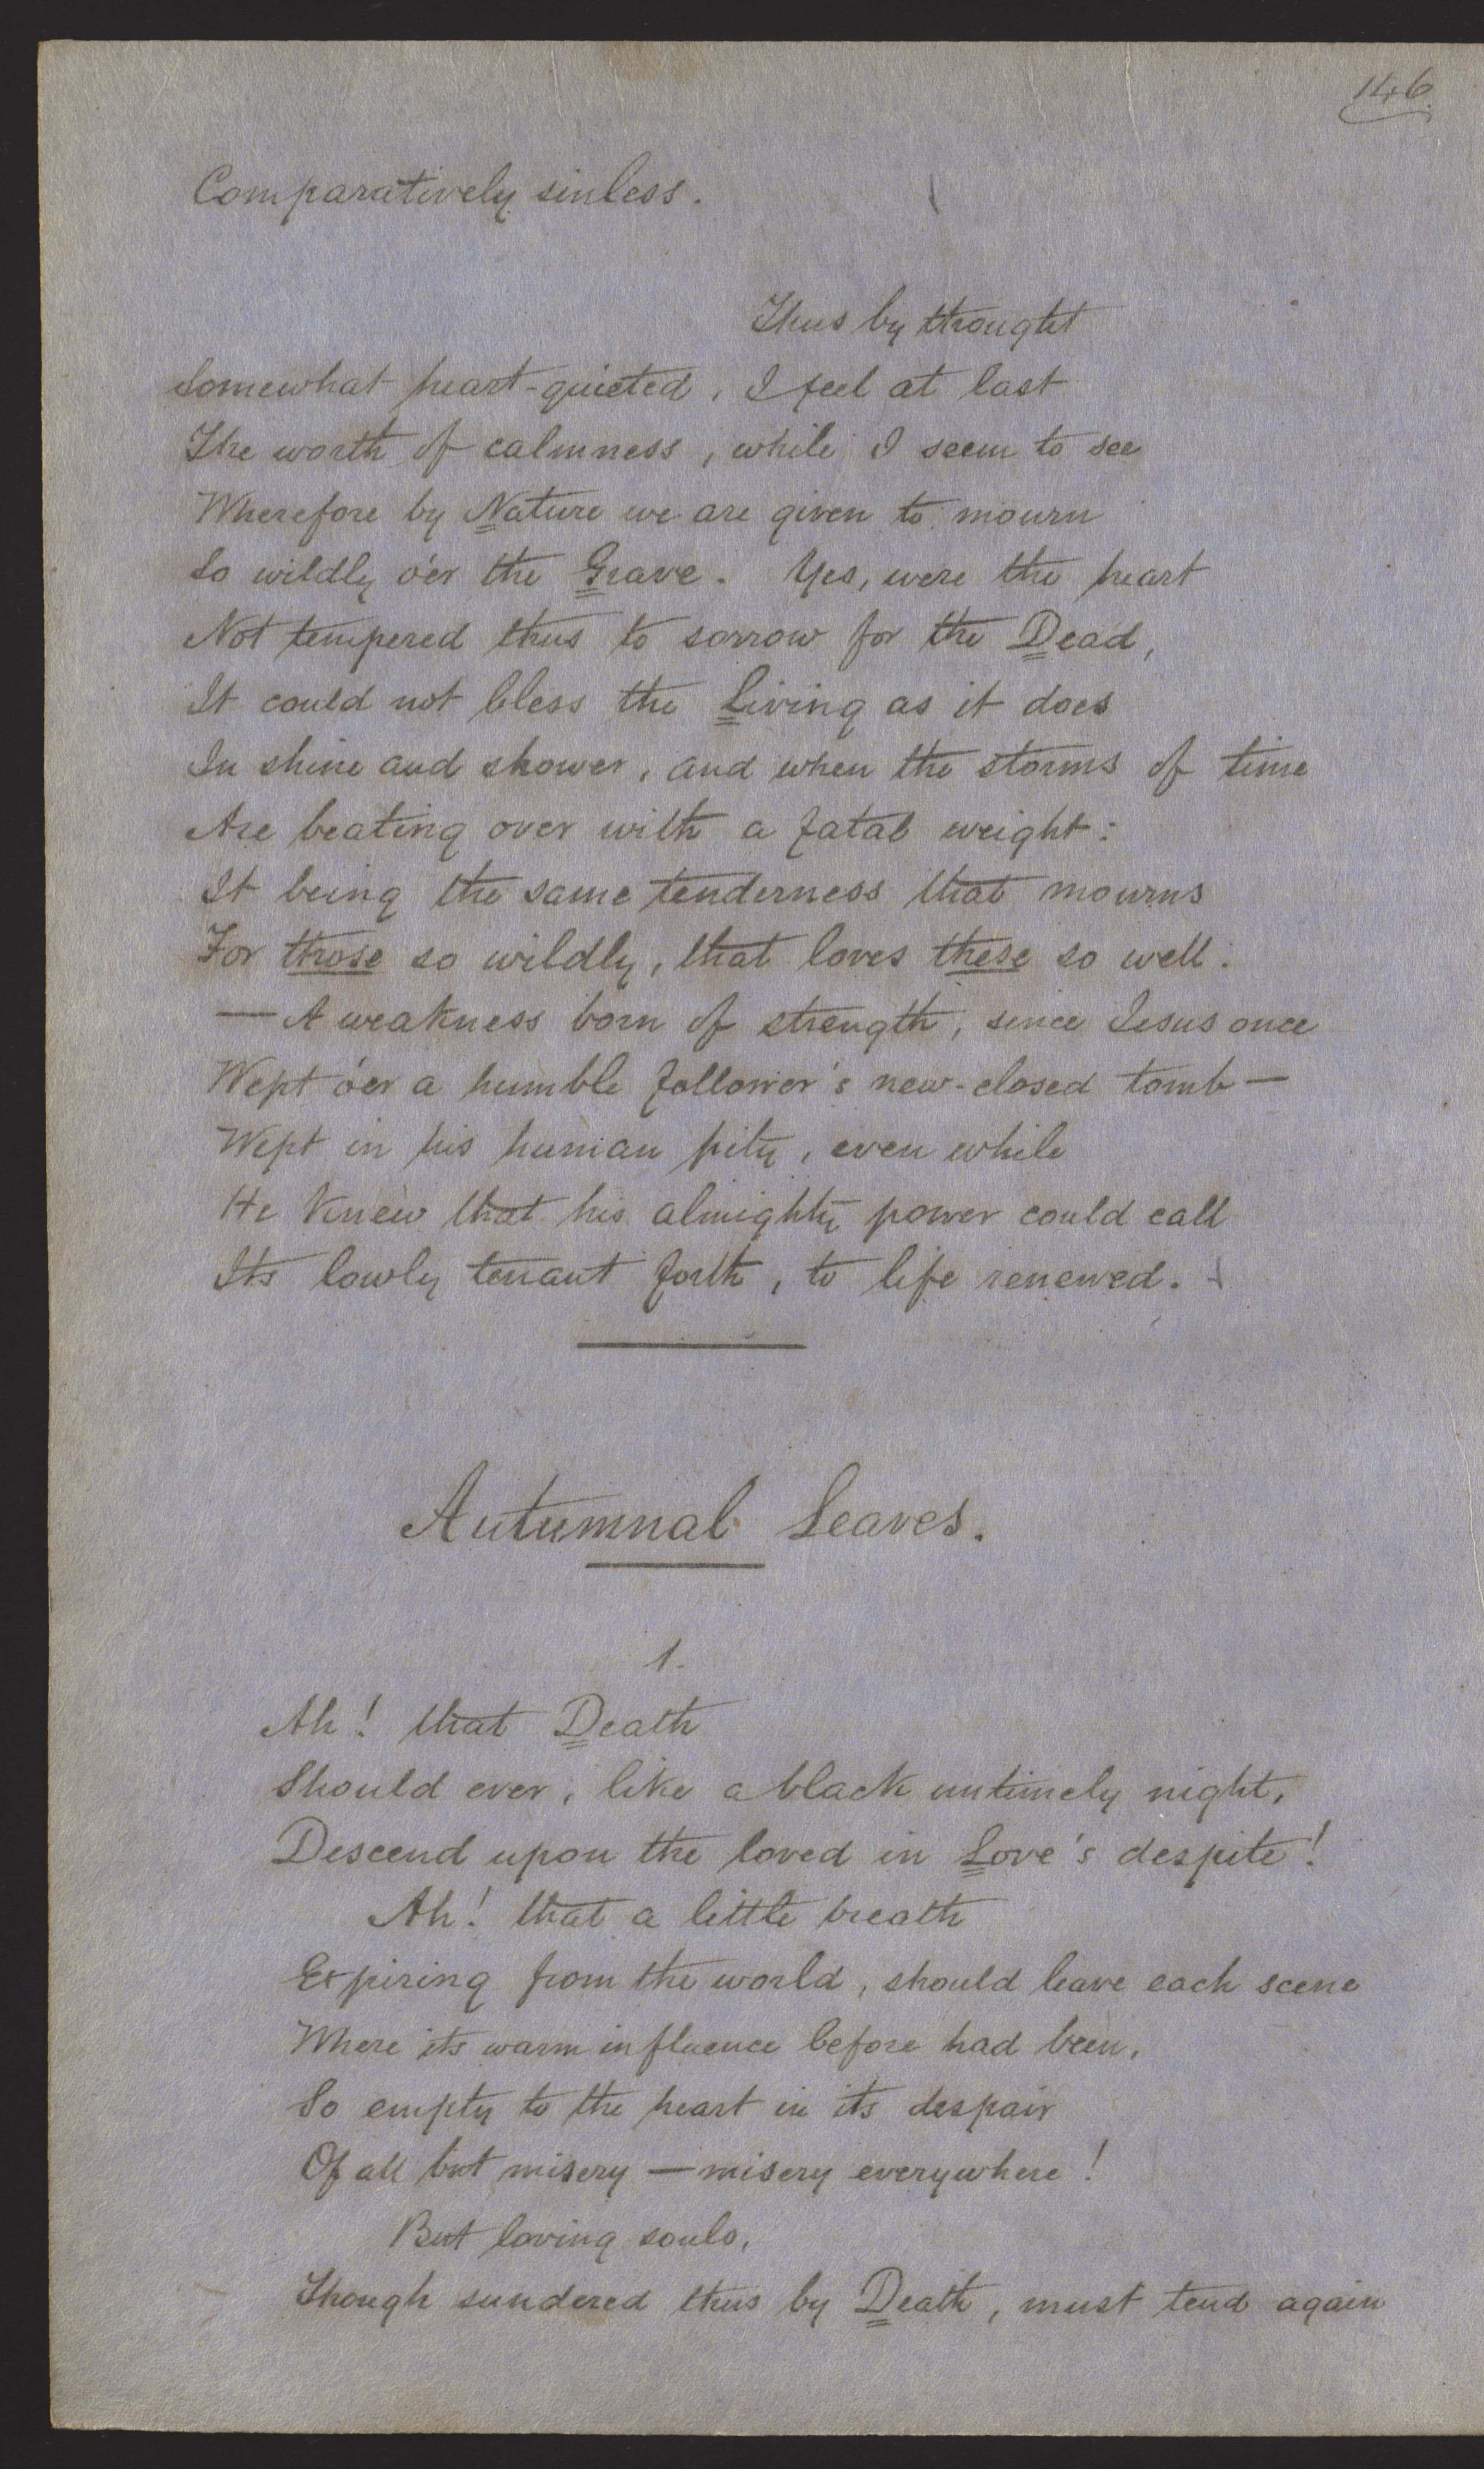 146.
Comparatively sinless.
Thus by thought
Somewhat heart-quieted, I feel at last
The worth of calmness, while I seem to see
Wherefore by Nature we are given to mourn
So wildly o'er the Grave. Yes, were the heart
Not tempered thus to sorrow for the Dead,
It could not bless the Living as it does
In shine and shower, and when the storms of time
Are beating over with a fatal weight:
It being the same tenderness that mourns
For those so wildly, that loves these so well:
— A weakness born of strength, since Jesus once
Wept o'er a humble follower's new-closed tomb —
Wept in his human pity, even while
He knew that his almighty power could call
Its lowly tenant forth, to life renewed.
Autumnal Leaves.
1.
Ah! that Death
Should ever, like a black untimely night,
Descend upon the loved in Love's despite!
Ah! that a little breath
Expiring from the world, should leave each scene
Where its warm influence before had been,
So empty to the heart in its despair
Of all but misery — misery everywhere!
But loving souls,
Though sundered thus by Death, must tend again